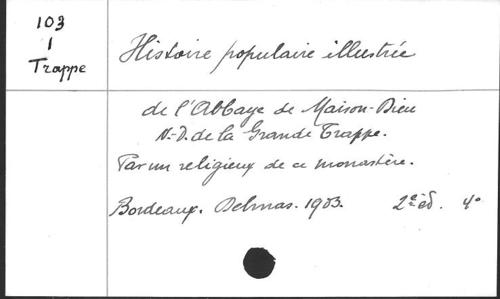 103
1
Trappe
Histoire populaire illustrée
de l'Abbaye de Maison-Dieu
N.-D. de la Grande Trappe.
Par un religieux de ce monastère.
Bordeaux. Delmas. 1903. 2e éd. 4°